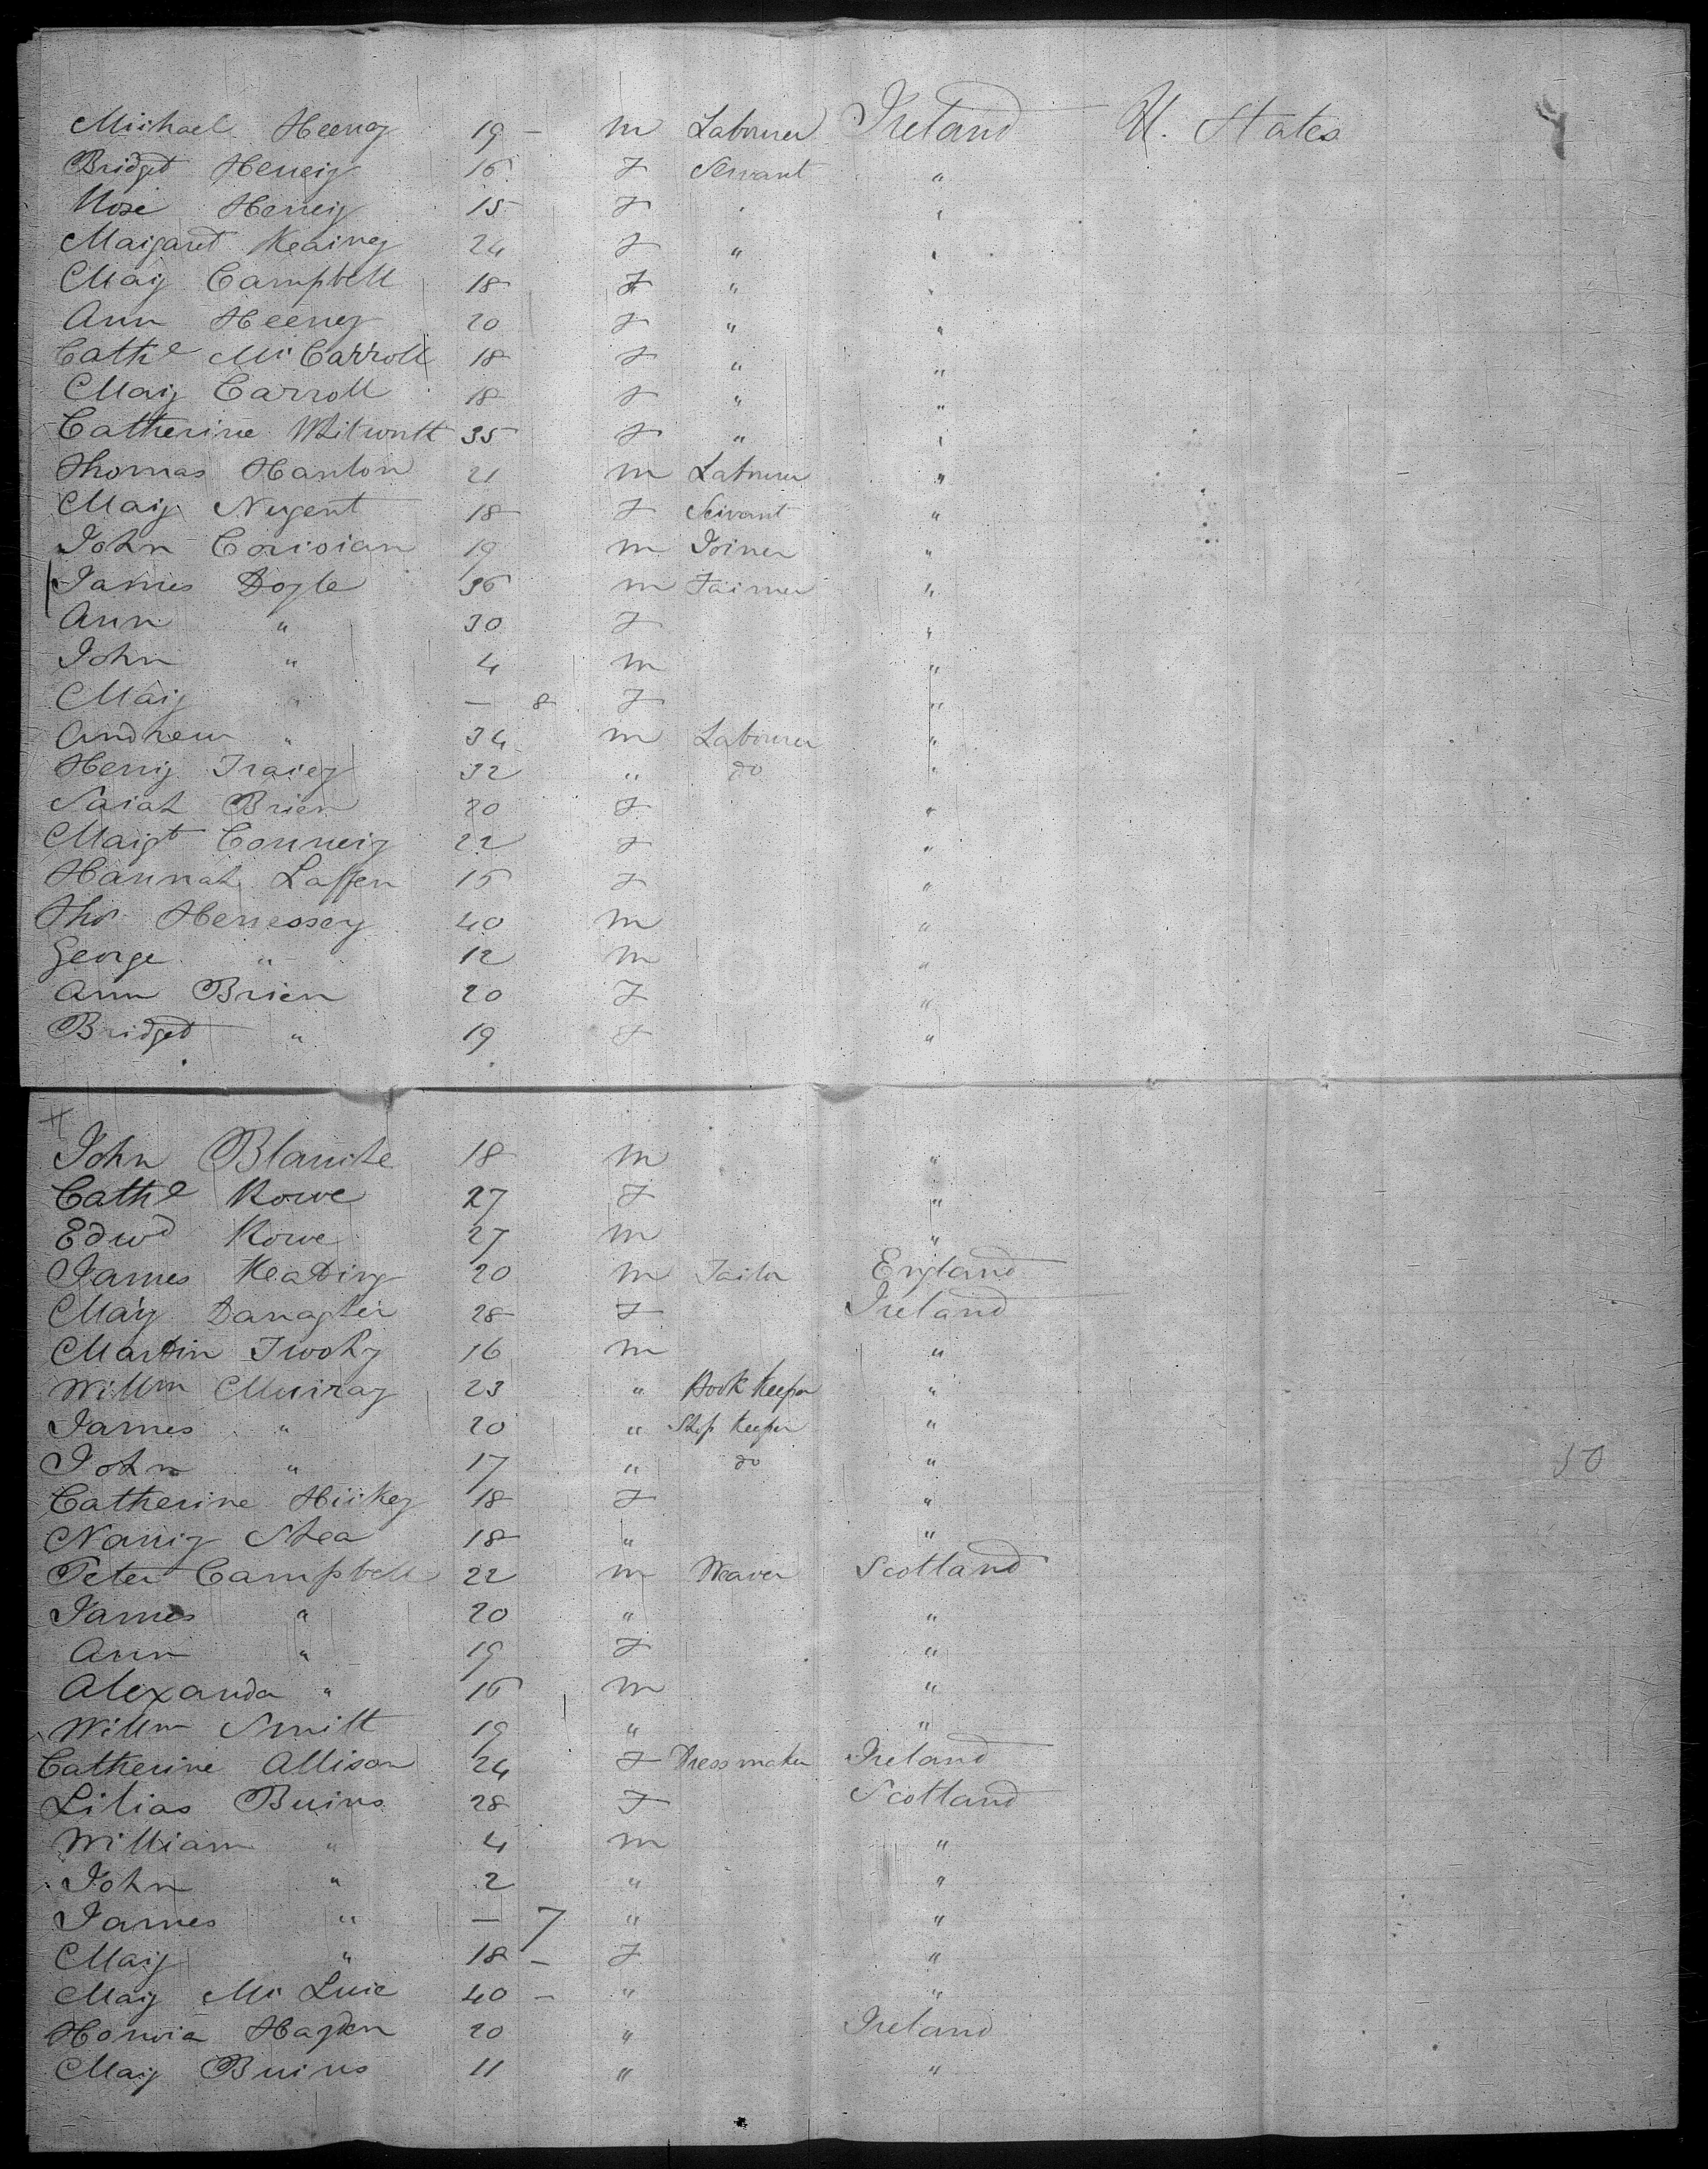 Michael Heeney 19 – m Labourer Ireland U. States
Bridget Heney 16 F Servant "
Rose Heney 15 F " "
Margaret Keainey 24 F " "
Mary Campbell 18 F " "
Ann Heeney 20 F " "
Cathe Mc Carroll 18 F " "
Mary Carroll 18 F " "
Catherine 35 F " "
Thomas Hanlon 21 m Labourer "
Mary Nugent 18 F Servant "
John 19 m Joiner "
James Doyle 36 m Farmer "
Ann " 30 F "
John " 4 m "
Mary " – 8 F "
Andrew " 34 m Labourer "
Henry Tracey 32 " do "
Sarah Brien 20 F "
Margt 22 F "
Hannah Laffen 16 F "
Thos Henessey 40 m "
George " 12 m "
Ann Brien 20 F "
Bridget " 19 F "
John Blanche 18 m "
Cathe Rowe 27 F "
Edwd Rowe 27 m "
James Keating 20 m Tailor England
Mary 28 F Ireland
Martin Twohy 16 m "
Willm Murray 23 " Book Keeper "
James " 20 " Shop Keeper "
John " 17 " do " 50
Catherine Hickey 18 F "
Nancy Shea 18 " "
Peter Campbell 22 m Weaver Scotland
James " 20 " "
Ann " 19 F "
Alexander " 16 m "
Willm Smith 19 " "
Catherine Allison 24 F Dressmaker Ireland
Lilias Burns 28 F Scotland
William " 4 m "
John " 2 " "
James " – 7 " "
Mary " 18 – F "
Mary Mc Lure 40 – " "
Honora Hayden 20 " Ireland
Mary Burns 11 " "